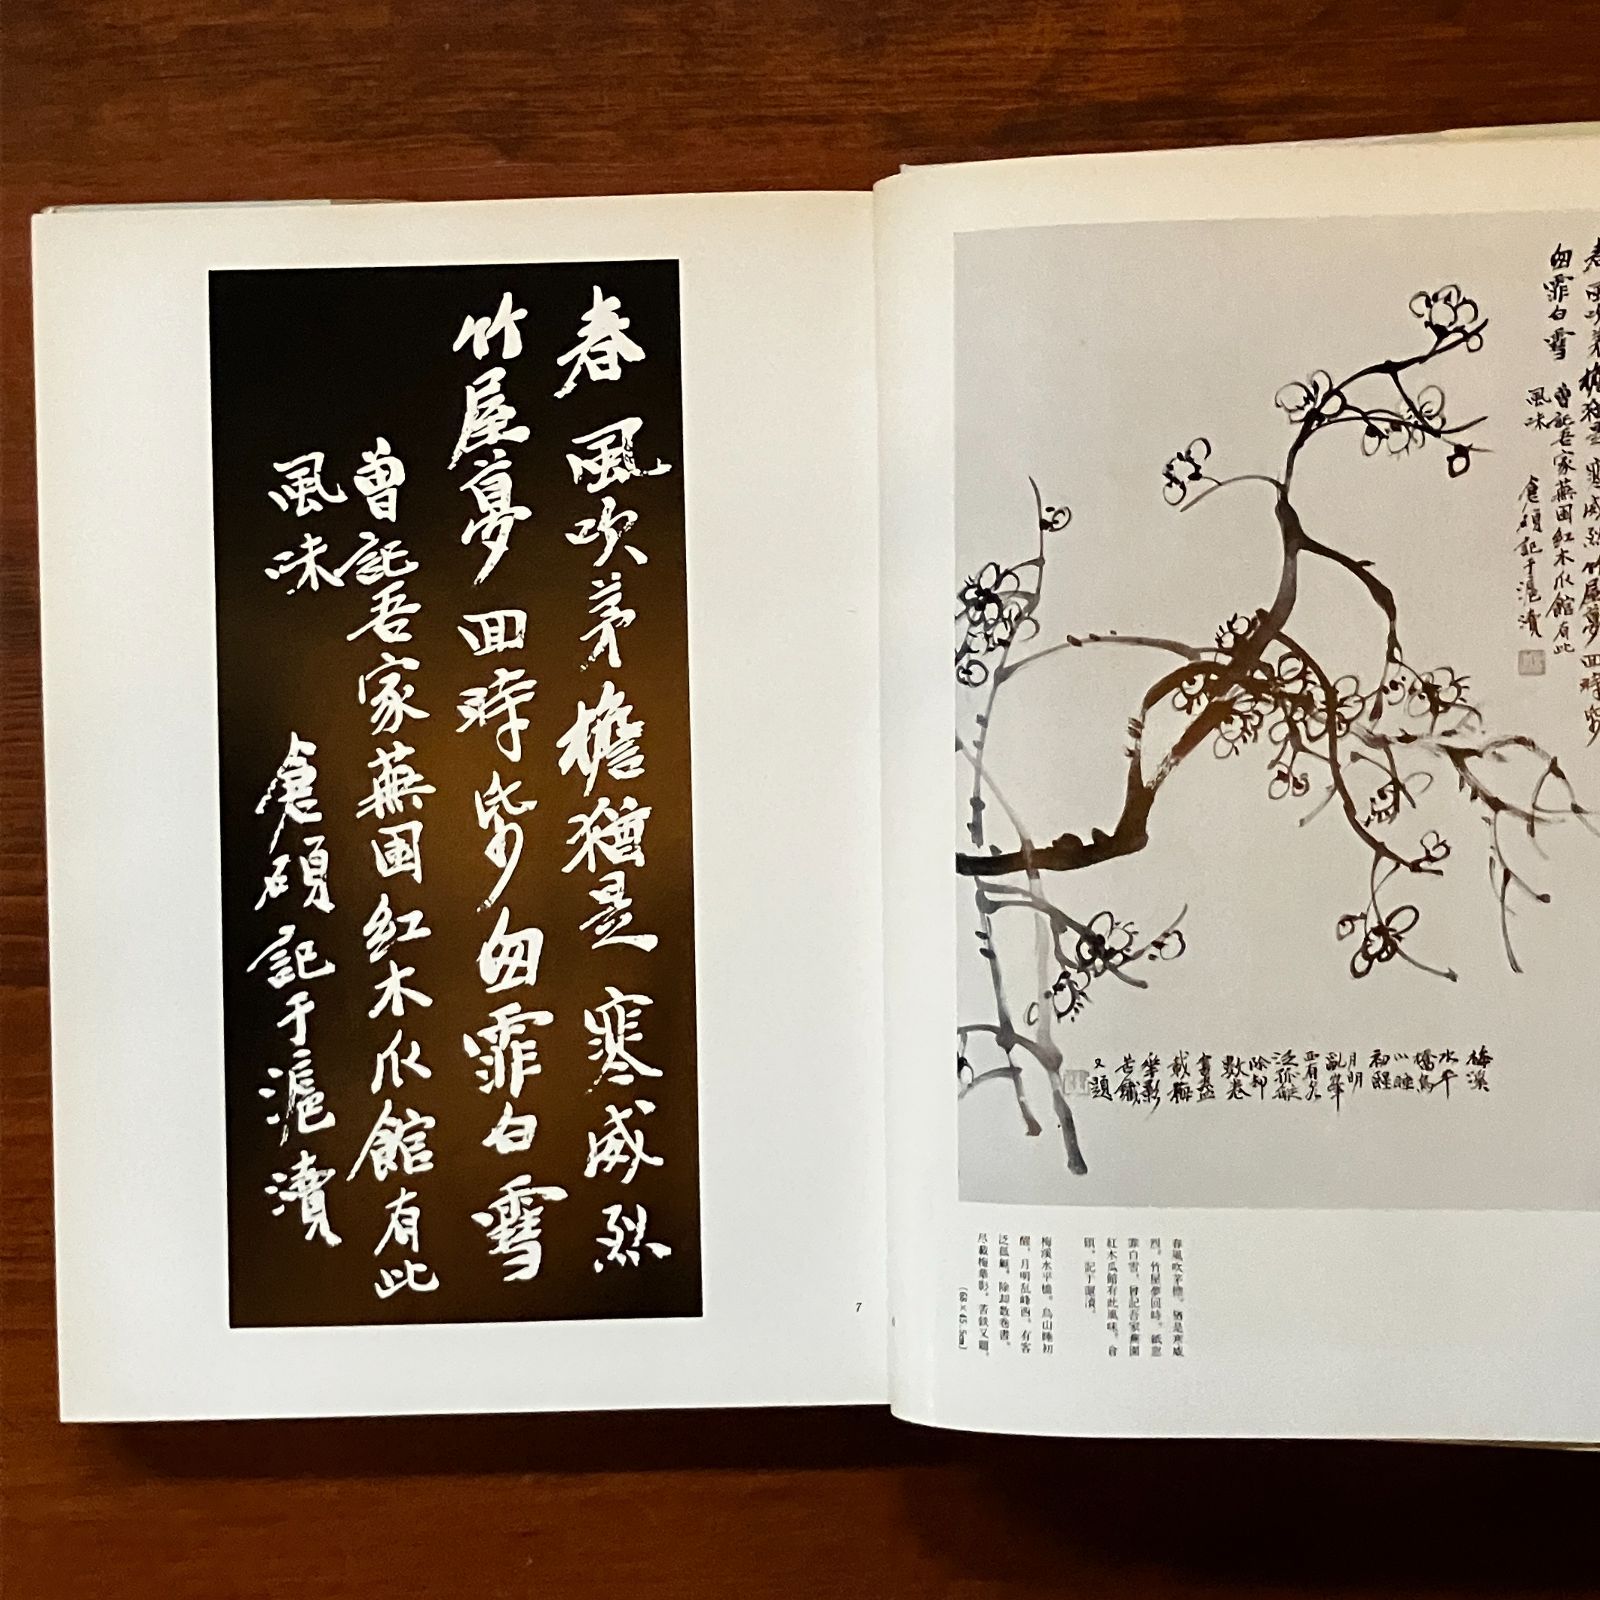 春風吹茅檐猶是寒威烈
竹屋夢回時紙窗霏白雪
曾記吾家蕪園紅木瓜館有此
風味
倉碩記于滬瀆
7
竹屋夢回時
霏白雪
曾記吾家蕪園紅木瓜館有此
風味
倉碩記于滬瀆
梅溪
水平
橋烏
山睡
初醒
月明
亂峯
西有客
泛孤艇
除却
數卷
書盡
載梅
華影
苦鐵
又題
春風吹茅檐。猶是寒威
烈。竹屋夢回時。紙窓
霏白雪。曾記吾家蕪園
紅木瓜館有此風味。倉
碩。記于滬瀆。
梅溪水平橋。烏山睡初
醒。月明乱峰西。有客
泛孤艇。除却数卷書。
尽載梅華影。苦鉄又題。
(68×45.5cm)